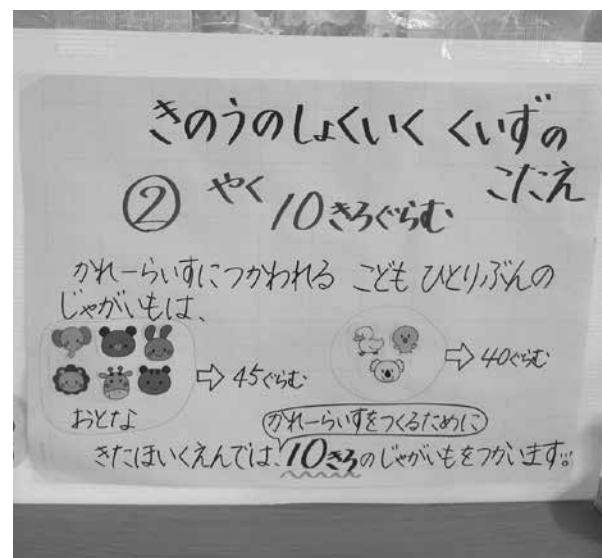 きのうのしょくいく くいずの
こたえ
② やく 10きろぐらむ
かれーらいすにつかわれる こども ひとりぶんの
じゃがいもは、
⇨ 45ぐらむ
⇨ 40ぐらむ
おとな
かれーらいすをつくるために
きたほいくえんでは、10きろのじゃがいもをつかいます。